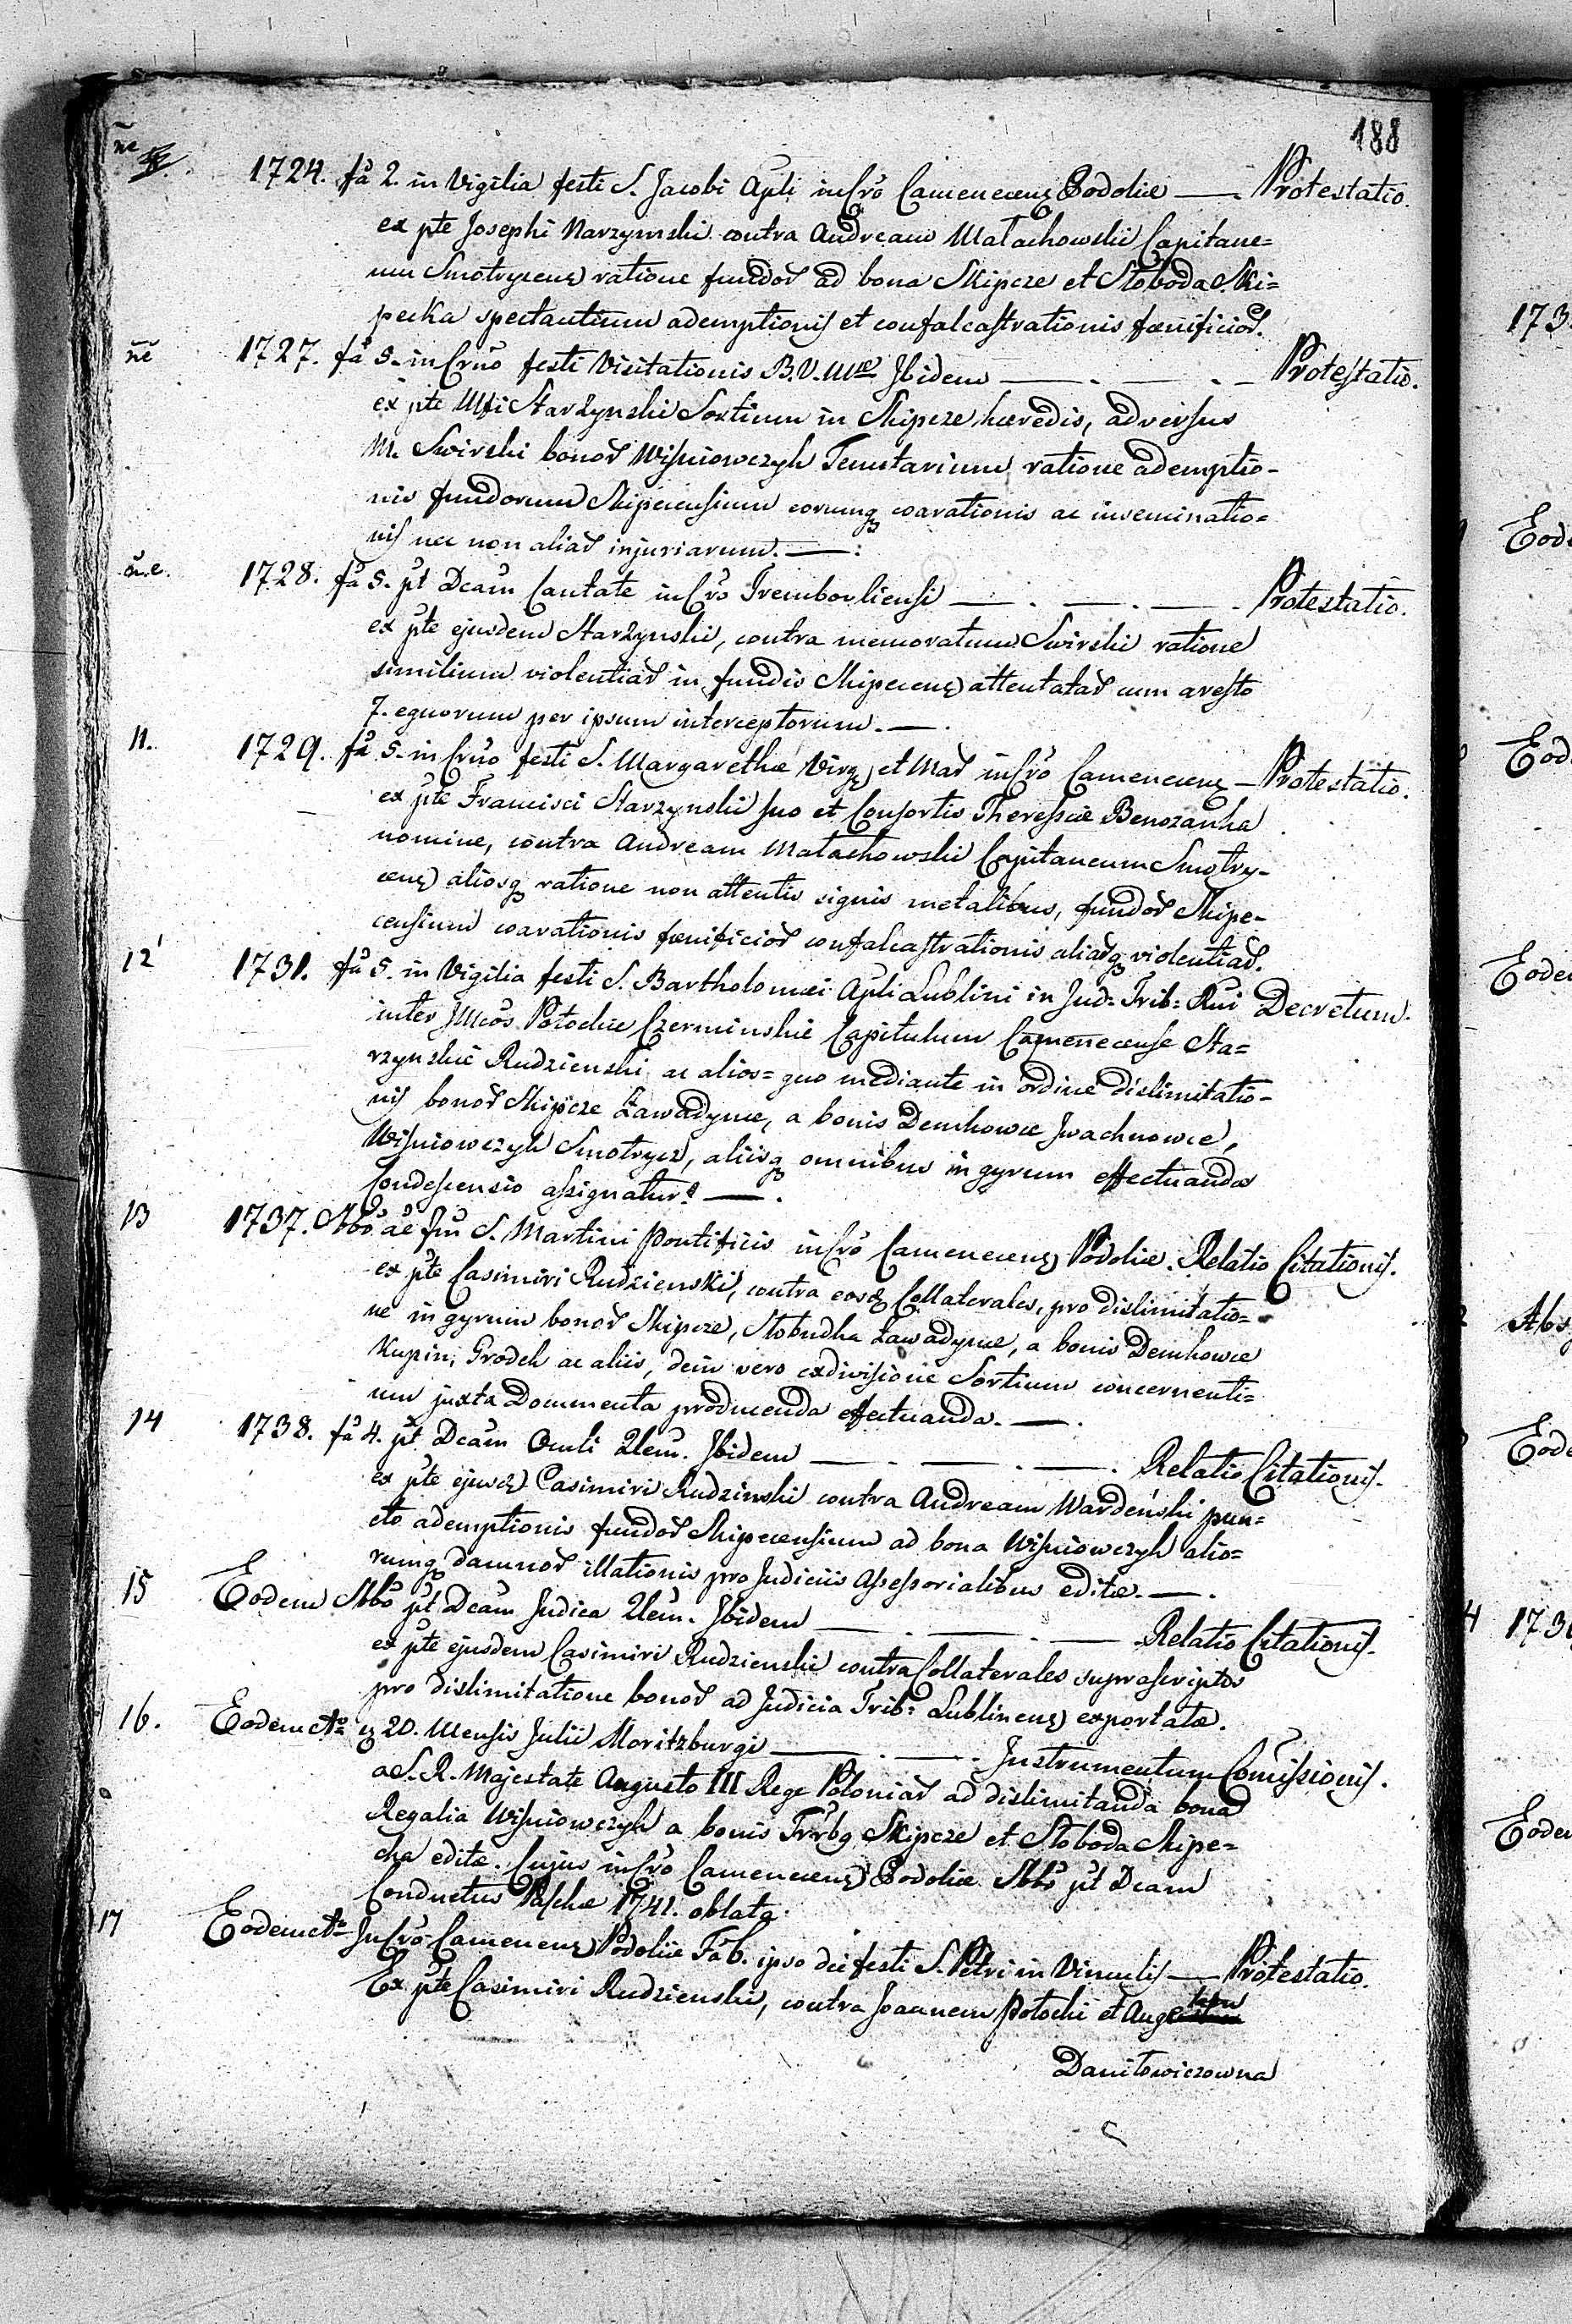 188
ñe
1724. fâ 2. in Vigilia festi S. Jacobi Apli in Cro Camenecens Podoliæ —. Protestatio.
ex pte Josephi Narzymski contra Andream Małachowski Capitane=
um Smotrycens ratione fundor ad bona Skipcze et Słoboda Ski=
pecka spectantium ademptionis et confalcastrationis fœnificior.
ñe 1727. fâ 5. in Crno festi Visitationis B. V. Mæ Ibidem —.—.— Protestatio.
ex pte Starzynski Sortium in Skipcze hæredis, adversus
M. Swirski bonor Wiśniowczyk Tenutarium ratione ademptio-
nis fundorum Skipecensium eorumq coarationis ac inseminatio=
nis nec non aliar injuriarum.—:
ñ.e. 1728. fâ 5. pt Dcam Cantate in Cro Trembovliensi —.—.—. Protestatio.
ex pte ejusdem Starzynski, contra memoratum Swirski ratione
similium violentiar in fundis Skipecens attentatar cum aresto
7. equorum per ipsum interceptorum.—.
11. 1729. fâ 5. in Crno festi S. Margarethæ Virg et Mar in Cro Camenecens — Protestatio.
ex pte Francisci Starzynski suo et Consortis Theressiæ Benozanka
nomine, contra Andream Małachowski Capitaneum Smotry-
cens aliosq ratione non attentis signis metalibus, fundor Skipe-
censium coarationis fœnificior confalcastrationis aliarq violentiar.
12 1731. fâ 5. in Vigilia festi S. Bartholomæi Apli Lublini in Jud: Trib: Rni Decretum.
inter Mcos Potockie Czerminskie Capitulum Camenecense Sta=
rzynskie Rudzienski ac alios= quo mediante in ordine dislimitatio-
nis bonor Skipcze Zawadynce, a bonis Demkowce Iwachnowce,
Wiśniowczyk Smotrycz, aliisq omnibus in gyrum effectuanda
Condescensio assignatur.—.
13 1737. Sbbo añe fm S. Martini Pontificis in Cro Camenecens Podoliæ. Relatio Citationis.
ex pte Casimiri Rudzienski, contra eosd Collaterales, pro dislimitatio=
ne in gyrum bonor Skipcze, Słobudka Zawadynce, a bonis Demkowce
Kupin, Grodek ac aliis, dein vero exdivisione Sortium concernenti=
um juxta Documenta producenda effectuanda.—.
14 1738. fâ 4. pt Dcam Oculi Qlem. Ibidem —.—.—. Relatio Citationis.
ex pte ejusd Casimiri Rudzinski contra Andream Wardeński pun=
cto ademptionis fundor Skipecensium ad bona Wiśniowczyk alio=
rumq damnor illationis pro Judiciis Assessorialibus editæ.—.
15 Eodem Sbbo pt Dcam Judica Qlem. Ibidem —.—.— Relatio Citationis.
ex pte ejusdem Casimiri Rudzienski contra Collaterales suprascriptos
pro dislimitatione bonor ad Judicia Trib: Lublinens exportata.
16. Eodem Ao 20. Mensis Julii Moritzburgi —.—. Instrumentum Comissionis.
a S. R. Majestate Augusto III Rege Poloniar ad dislimitanda bona
Regalia Wiśniowczyk a bonis Trrbg Skipcze et Słoboda Skipe=
cka edita. Cujus in Cro Camenecens Podoliæ Sbbo pt Dcam
Conductus Paschæ 1741. oblata.
17 Eodem Ao In Cro Camenens Podoliæ Fâ 6. ipso die festi S. Petri in Vinculis — Protestatio.
Ex pte Casimiri Rudzienski, contra Joannem Potocki et
Daniłowiczowna
173
Eod
Eod
Eoden
Abs
Eode
173
Eoden